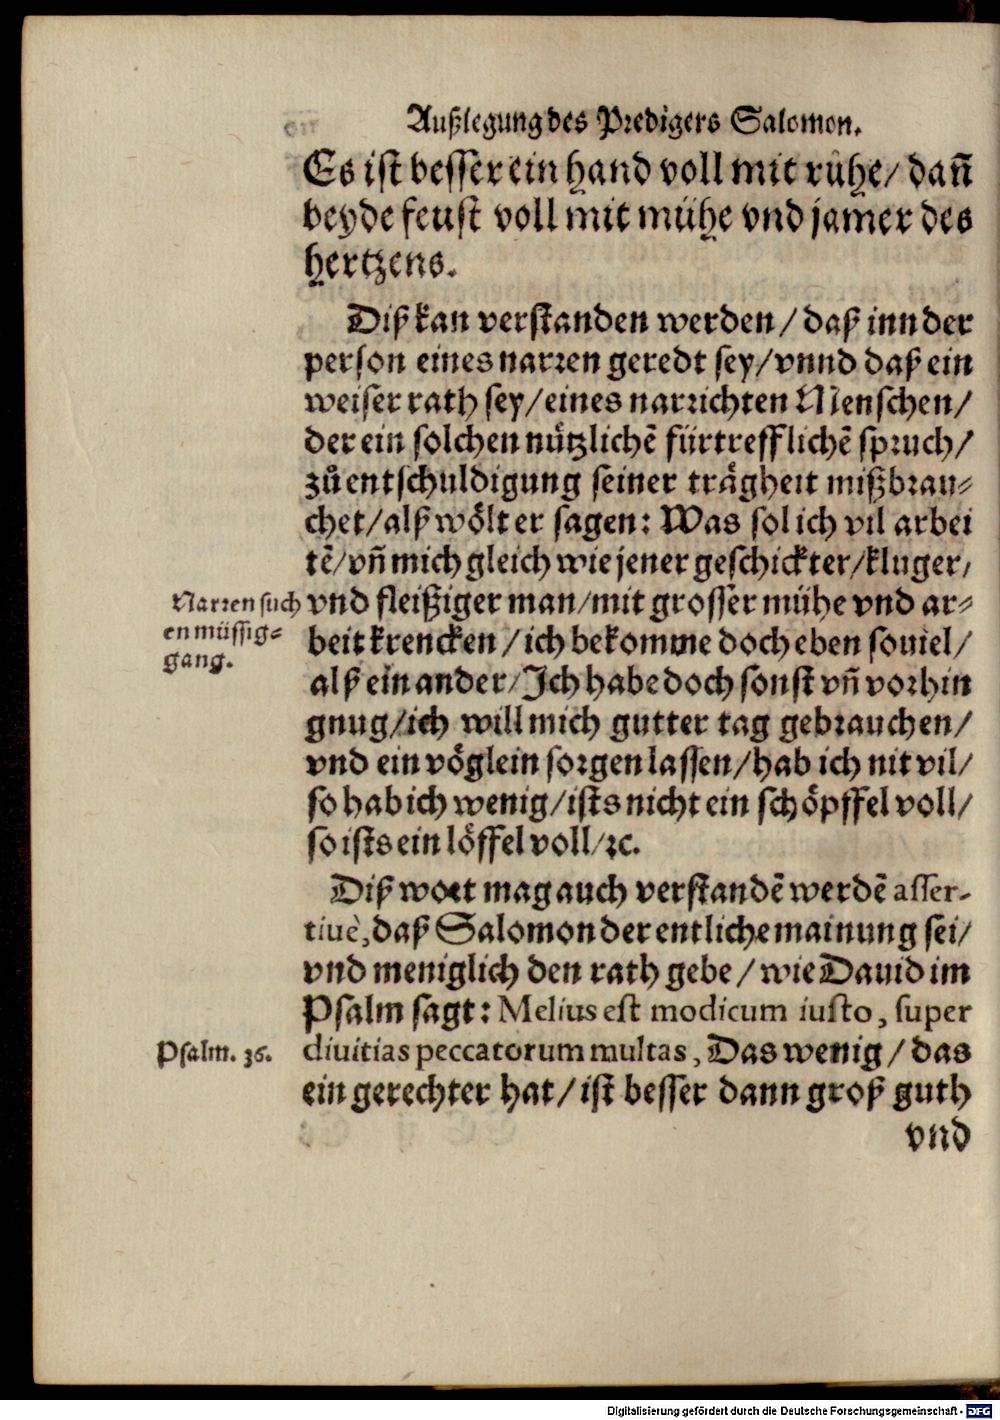 Außlegung des Predigers Salomon.
Es ist besser ein hand voll mit růhe/ dañ
beyde feust voll mit mühe vnd jamer des
hertzens.
Diß kan verstanden werden/ daß inn der
person eines narren geredt sey/ vnnd daß ein
weiser rath sey/ eines narrichten Menschen/
der ein solchen nützlichẽ fürtrefflichẽ spruch/
zů entschuldigung seiner trågheit mißbrau⸗
chet/ alß wölt er sagen: Was sol ich vil arbei
tẽ/ vñ mich gleich wie jener geschickter/ kluger/
Narren such
en müssig⸗
gang.
vnd fleißiger man/ mit grosser mühe vnd ar⸗
beit krencken/ ich bekomme doch eben souiel/
alß ein ander/ Ich habe doch sonst vñ vorhin
gnug/ ich will mich gutter tag gebrauchen/
vnd ein vöglein sorgen lassen/ hab ich nit vil/
so hab ich wenig/ ists nicht ein schöpffel voll/
so ists ein löffel voll/ ꝛc.
Diß wort mag auch verstandẽ werdẽ asser-
tiuè, daß Salomon der entliche mainung sei/
vnd meniglich den rath gebe/ wie Dauid im
Psalm sagt: Melius est modicum iusto, super
Psalm. 36.
diuitias peccatorum multas, Das wenig/ das
ein gerechter hat/ ist besser dann groß guth
vnd
Digitalisierung gefördert durch die Deutsche Forschungsgemeinschaft - DFG